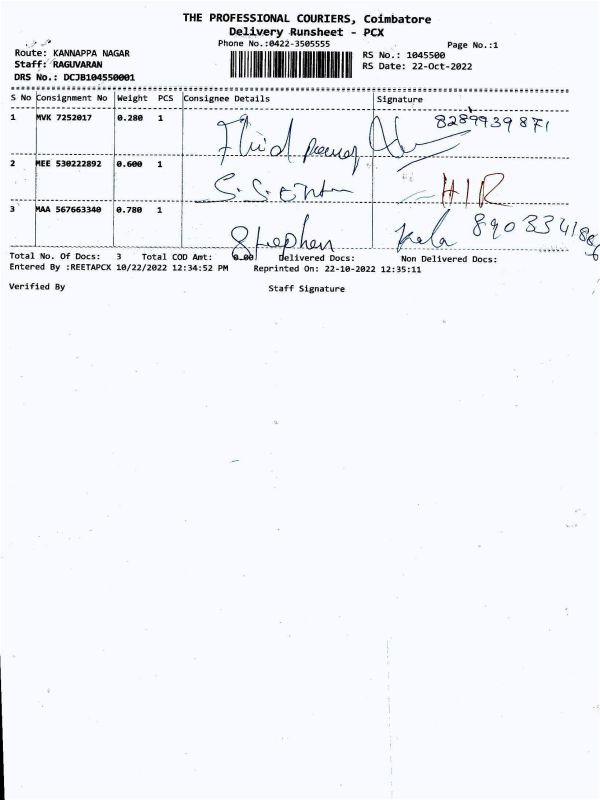 THE PROFESSIONAL COURIERS, Coimbatore
Delivery Runsheet - PCX
Phone No.:0422-3505555
Page No.:1
Route: KANNAPPA NAGAR
RS No.: 1045500
Staff: RAGUVARAN
RS Date: 22-Oct-2022
DRS No.: DCJB104550001
S No Consignment No Weight PCS Consignee Details Signature
1 MVK 7252017 0.280 1 Fluid 8289939871
2 MEE 530222892 0.600 1 S.S. HIR
3 MAA 567663340 0.780 1 Stephen kala
Total No. Of Docs: 3 Total COD Amt: 0.00 Delivered Docs: Non Delivered Docs:
Entered By :REETAPCX 10/22/2022 12:34:52 PM Reprinted On: 22-10-2022 12:35:11
Verified By Staff Signature